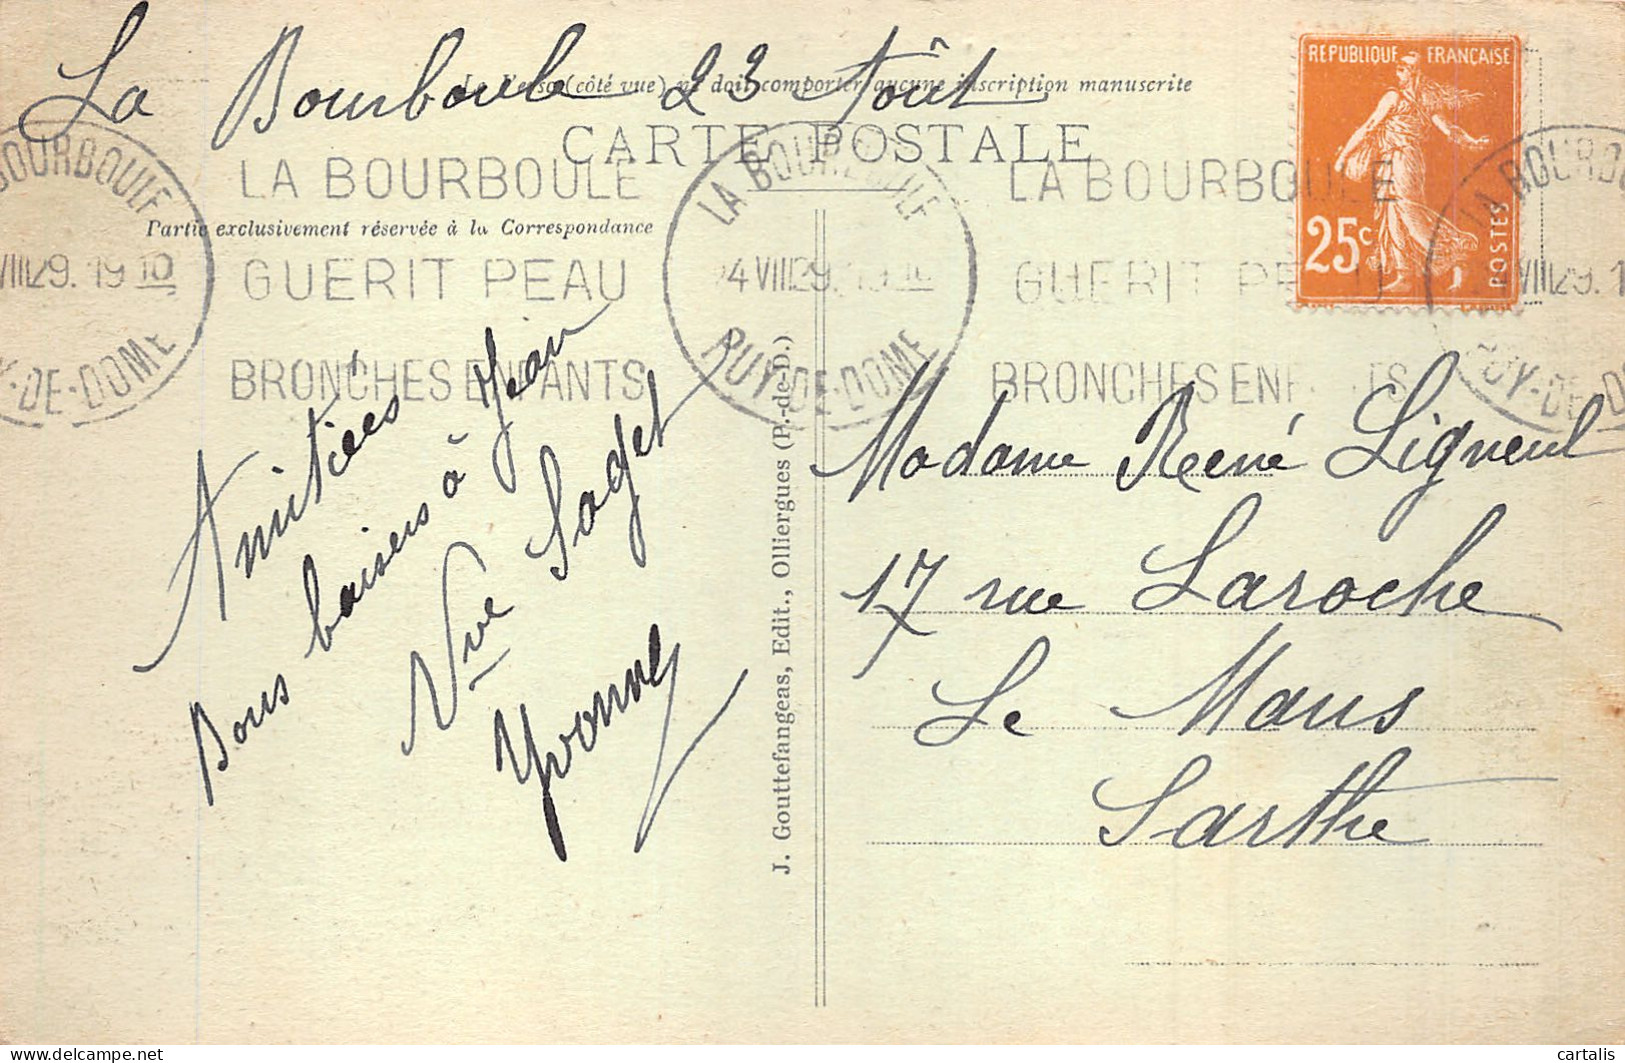 La Bourboule 23 Août
Le Verso (côté vue) ne doit comporter aucune inscription manuscrite
CARTE POSTALE
REPUBLIQUE FRANÇAISE
25c
POSTES
BOURBOULE
VIII29. 19 10
Y-DE-DOME
LA BOURBOULE
GUERIT PEAU
BRONCHES ENFANTS
LA BOURBOULE
24 VIII29. 19 10
PUY-DE-DOME
LA BOURBOULE
GUERIT PEAU
BRONCHES ENFANTS
LA BOURBOU
VIII29. 1
PUY-DE-D
Partie exclusivement réservée à la Correspondance
Amitiées
Bons baisers à Jean
Vve Saget
Yvonne
J. Gouttefangeas, Edit., Olliergues (P.-de-D.)
Madame René Ligneul
17 rue Laroche
Le Mans
Sarthe
cartalis